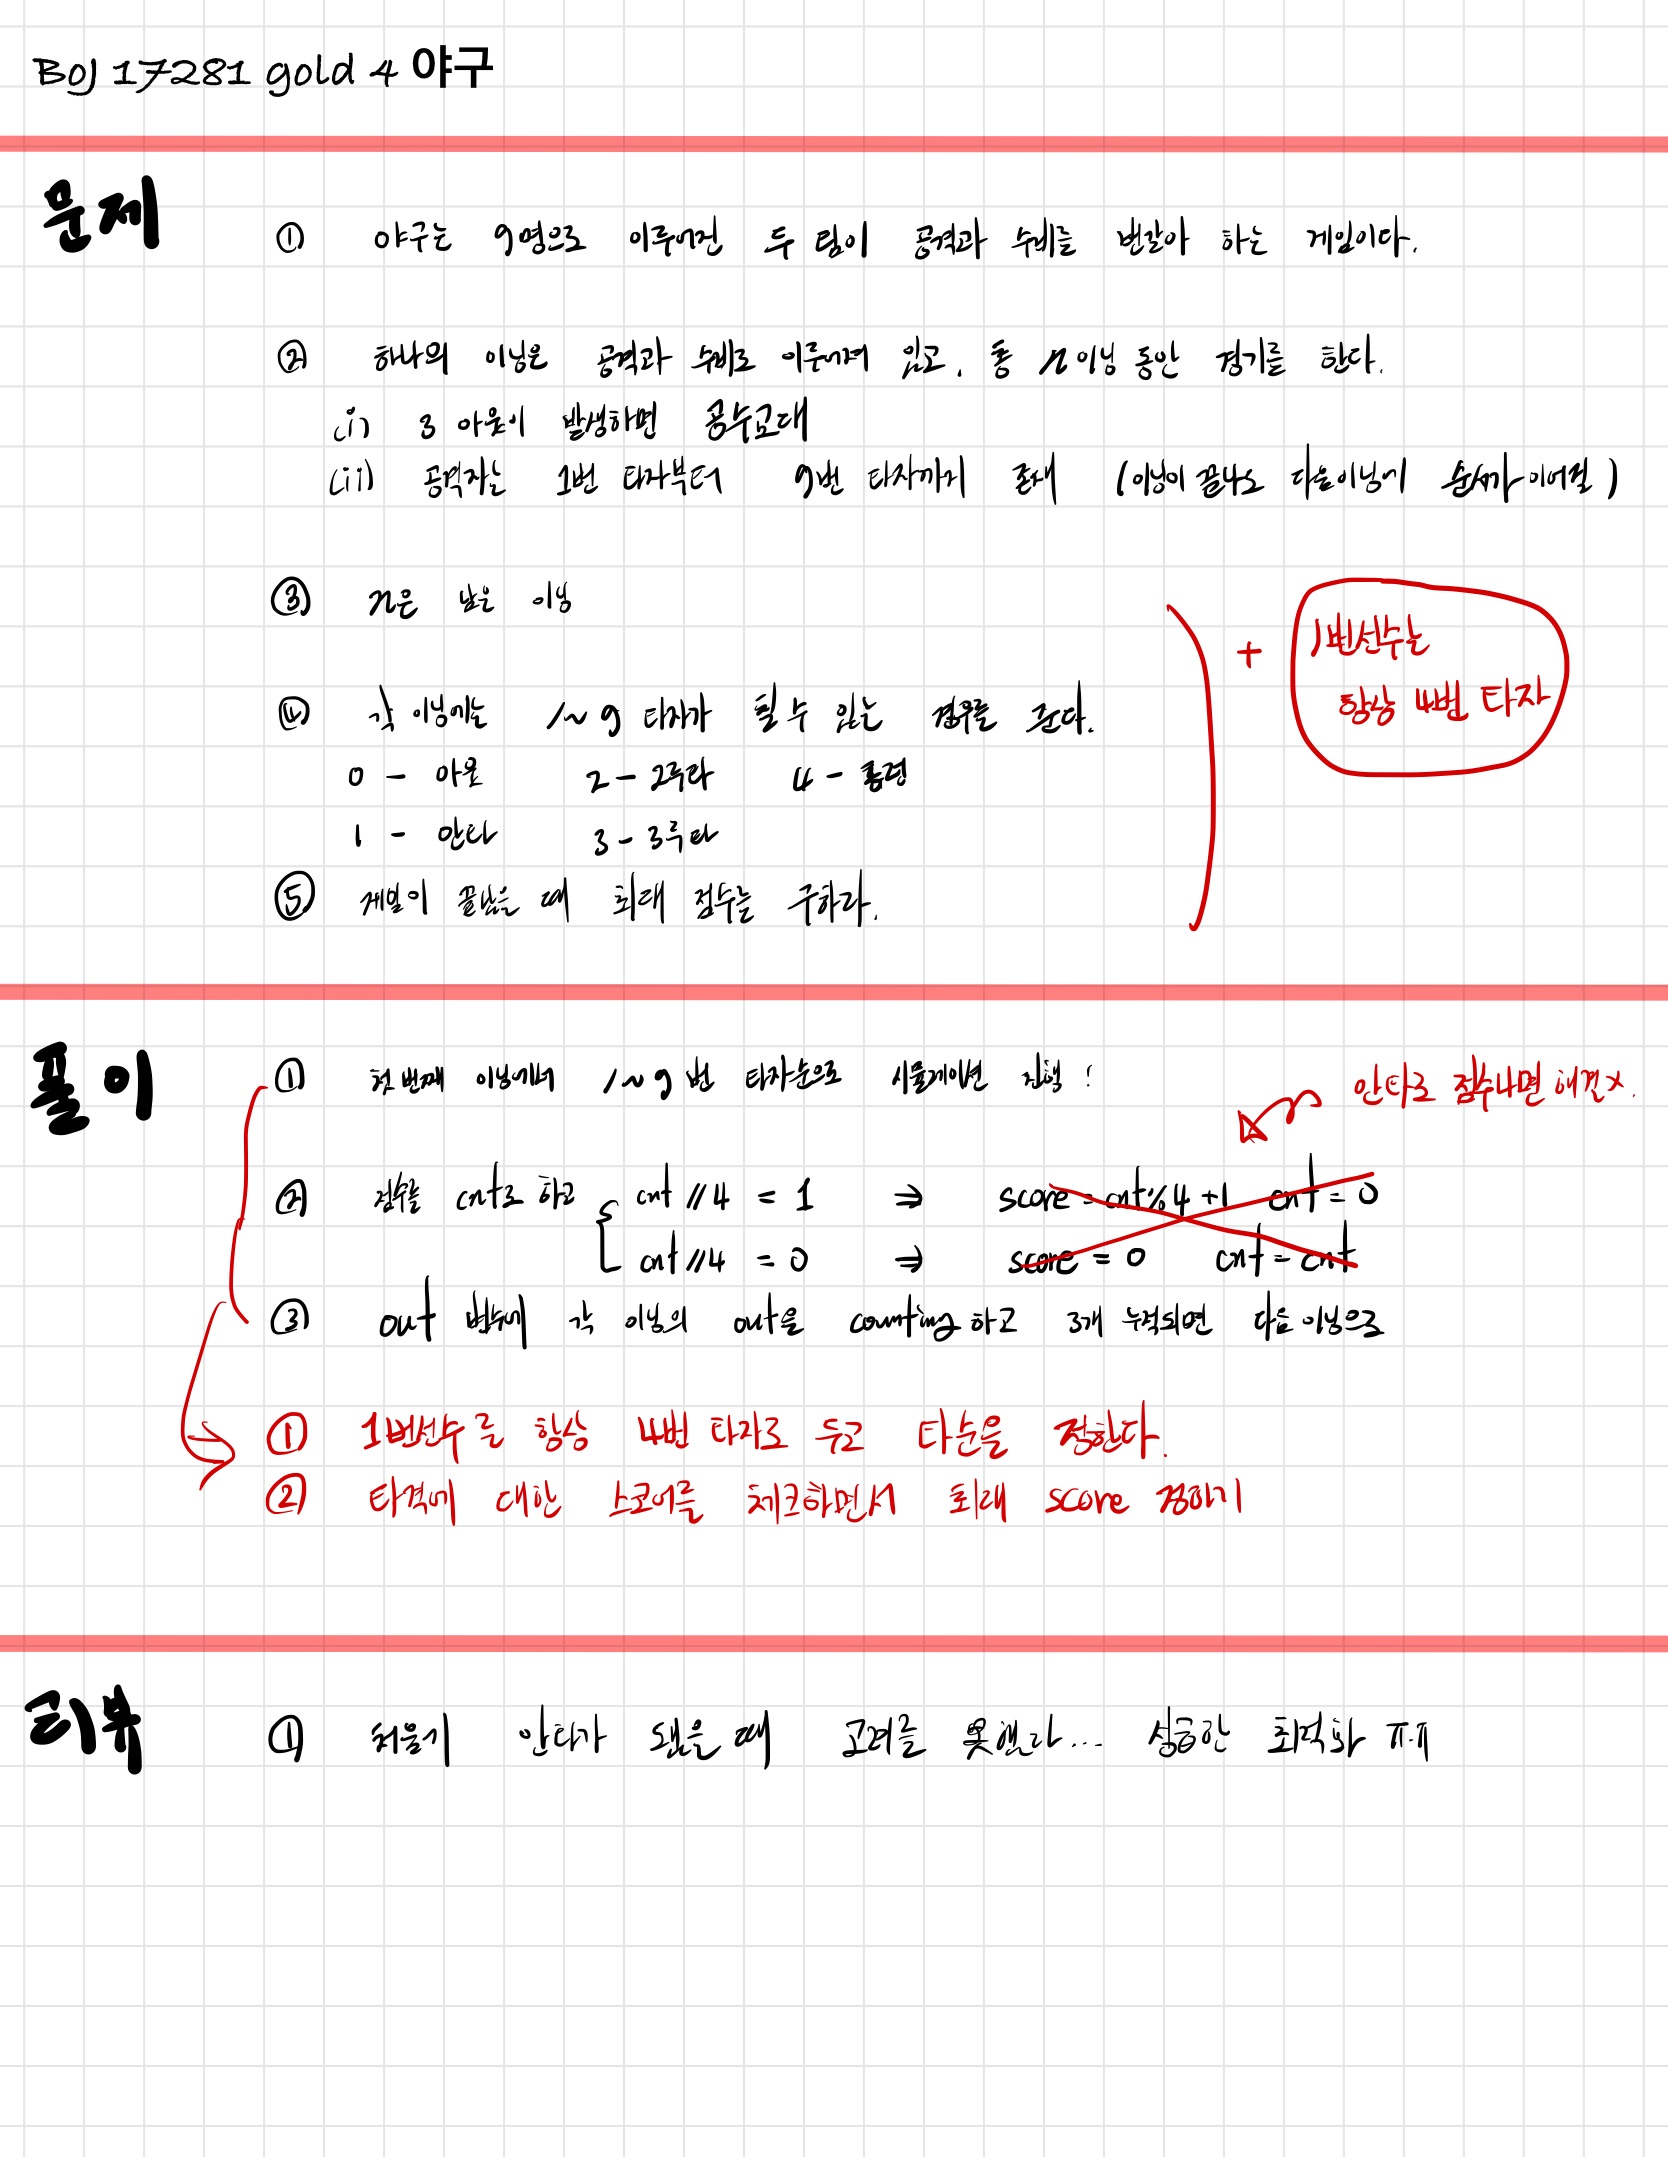 BOJ 17281 gold 4 야구
문제
① 야구는 9명으로 이루어진 두 팀이 공격과 수비를 번갈아 하는 게임이다.
② 하나의 이닝은 공격과 수비로 이루어져 있고, 총 n이닝 동안 경기를 한다.
(i) 3 아웃이 발생하면 공수교대
(ii) 공격자는 1번 타자부터 9번 타자까지 존재 (이닝이 끝나도 다음이닝에 순서가 이어짐)
③ n은 남은 이닝
④ 각 이닝에는 1~9 타자가 칠 수 있는 경우를 준다.
0 - 아웃 2 - 2루타 4 - 홈런
1 - 안타 3 - 3루타
⑤ 게임이 끝났을 때 최대 점수를 구하라.
+ 1번선수는
항상 4번 타자
풀이
① 첫 번째 이닝에서 1~9번 타자순으로 시뮬레이션 진행!
안타로 점수나면 해결x.
② 점수를 cnt로 하고 cnt//4 = 1 ⇒ score = cnt%4 +1 cnt = 0
cnt//4 = 0 ⇒ score = 0 cnt = cnt
③ out 변수에 각 이닝의 out을 counting 하고 3개 누적되면 다음 이닝으로
① 1번선수를 항상 4번 타자로 두고 타순을 정한다.
② 타격에 대한 스코어를 체크하면서 최대 score 정하기
리뷰
① 처음기 안타가 됐을 때 고려를 못했다... 심한 최적화 ㅠ.ㅠ